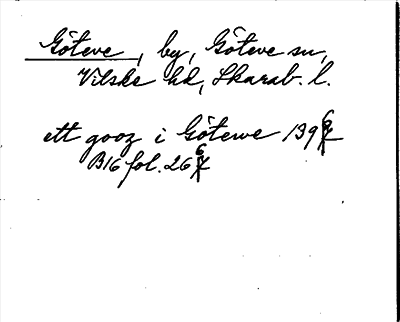 Göteve, by, Göteve sn,
Vilske hd, Skarab. l.
ett gooz i Götewe 139
B16 fol. 26